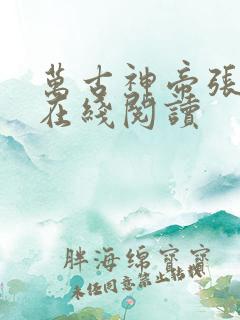 萬古神帝張
在綫閱讀
胖海绵寶寶
未经同意禁止转载